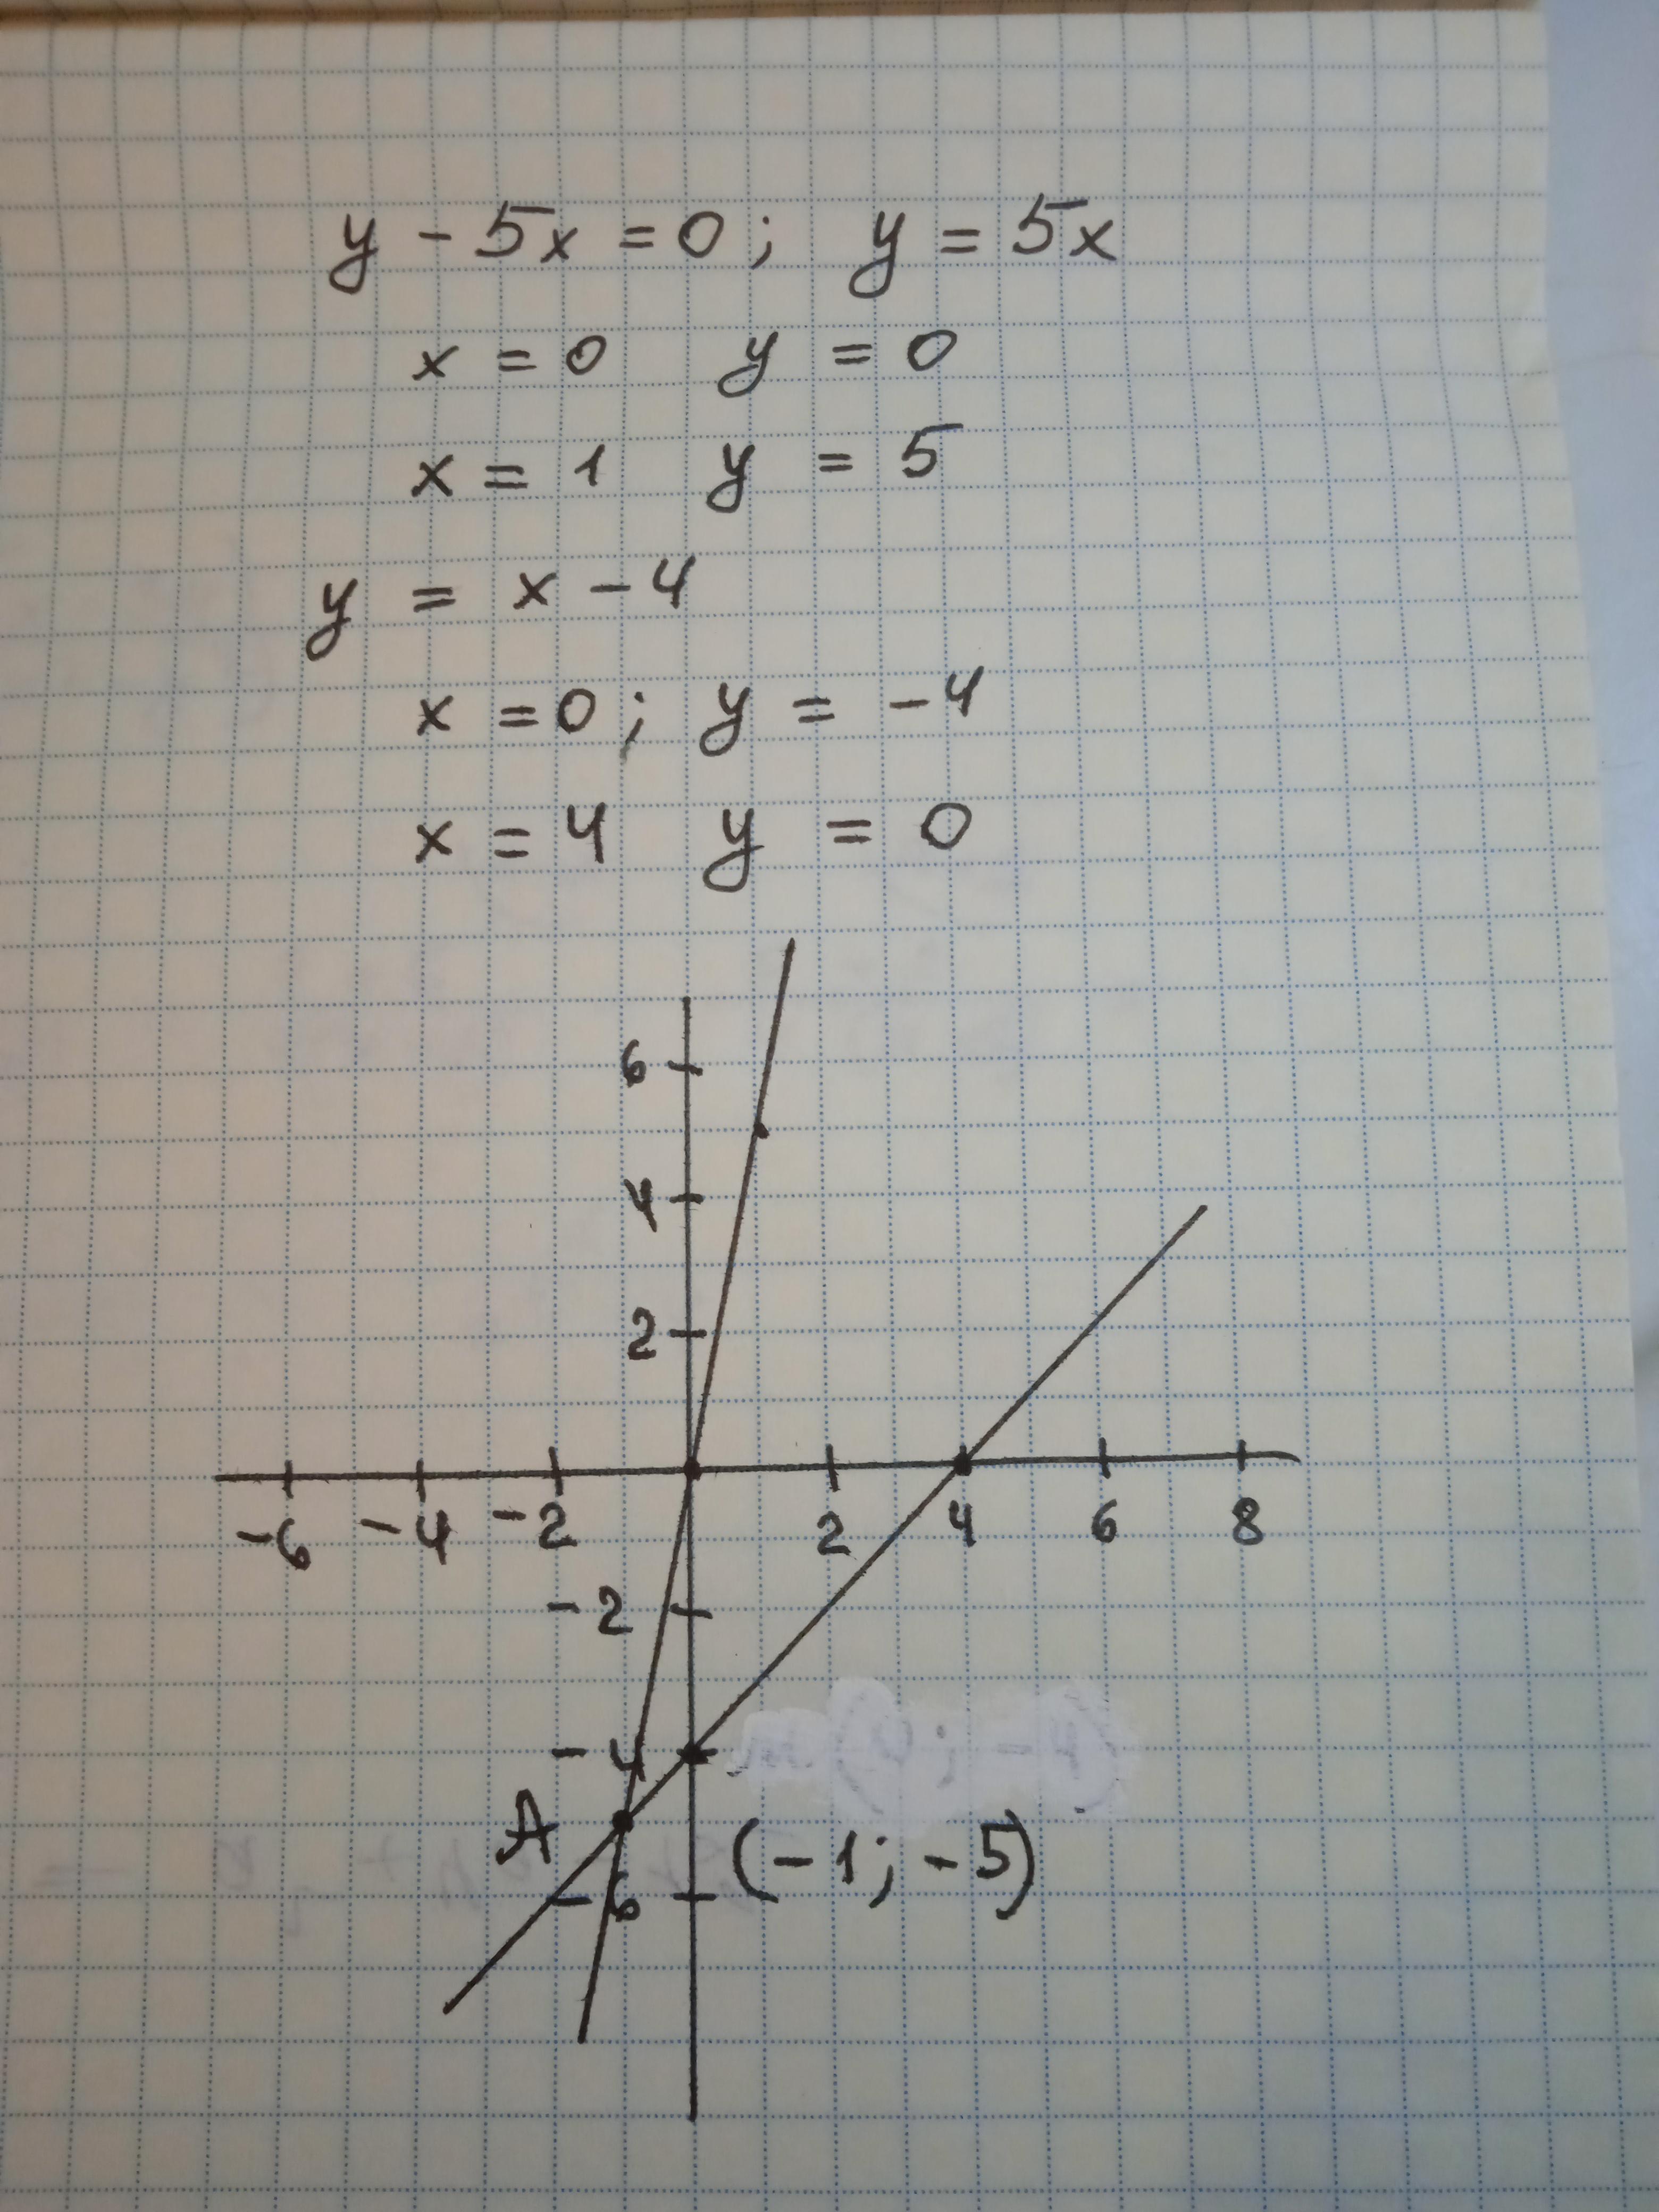 y - 5x = 0; y = 5x
x = 0 y = 0
x = 1 y = 5
y = x - 4
x = 0; y = -4
x = 4 y = 0
6
4
2
-6 -4 -2 2 4 6 8
-2
-4
A (-1; -5)
-6